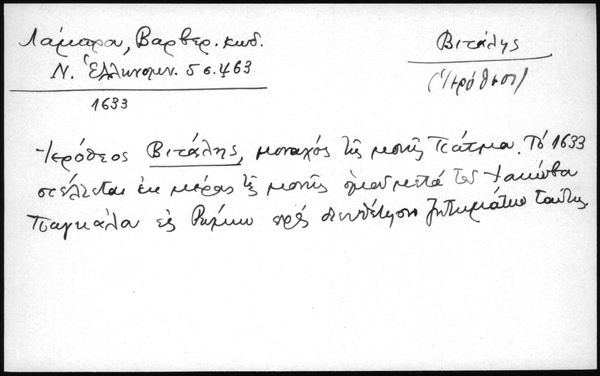 Λάμπρου, Βαρβερ. κωδ.
Ν. Ἑλληνομν. 5 σ. 463
1633
Βιτάλης
(Ἱερόθεος)
Ἱερόθεος Βιτάλης, μοναχός τῆς μονῆς Πάτμου. Τό 1633
στέλεται ἐκ μέρους τῆς μονῆς ὁμοῦ μετά τοῦ Ἰακώβου
Παγκάλου εἰς Ρώμην πρός διευθέτησιν ζητημάτων ταύτης.